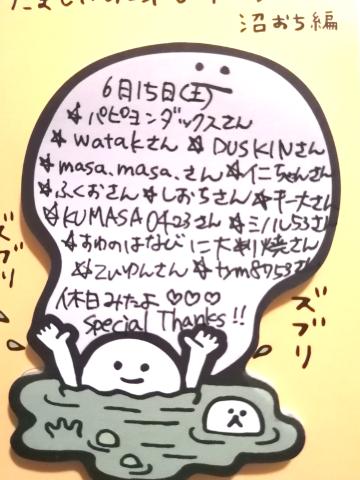 沼おち編
6月15日(土)
☆パピヨンダックスさん
☆watakさん ☆DUSKINさん
☆masa.masa.さん ☆仁ちゃんさん
☆ふくおさん ☆しおちさん ☆キー大さん
☆KUMASA0423さん ☆ミハル53さん
☆すゆのはなびに大判焼さん
☆てぃゆんさん ☆tym8753さん
休日みたよ♡♡♡
Special Thanks!!
ズブリ
ズブリ